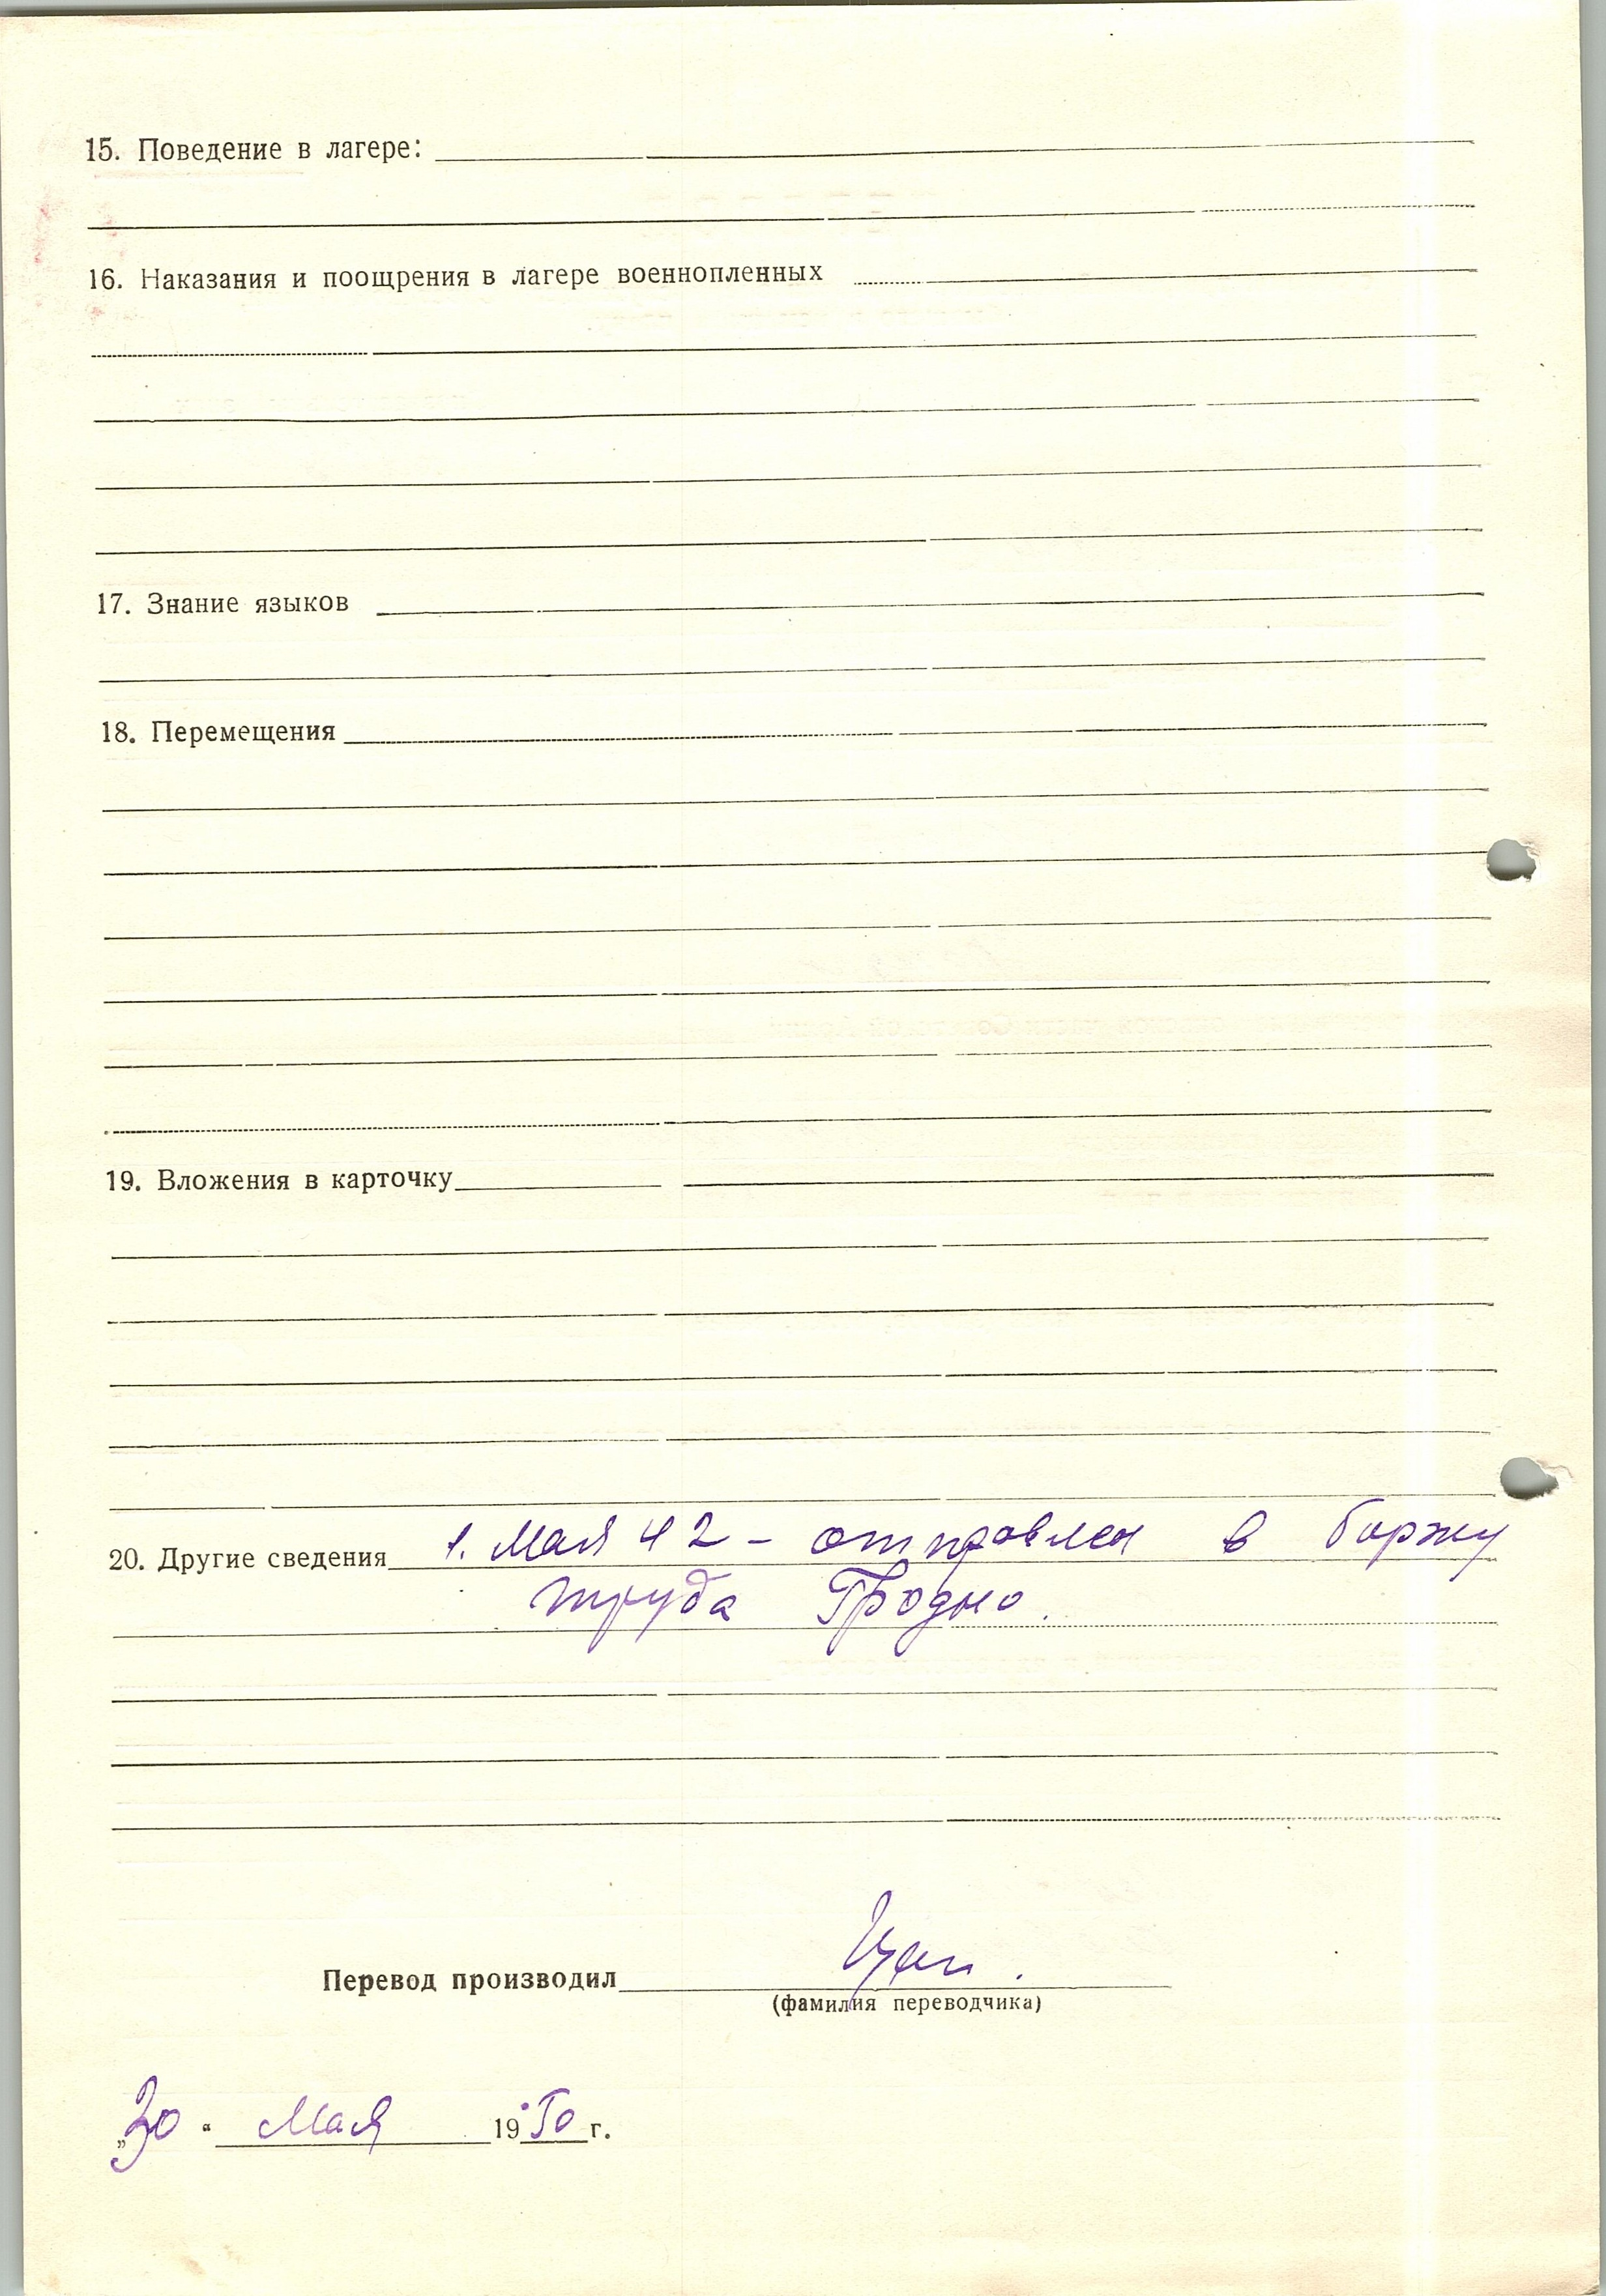 15. Поведение в лагере:
16. Наказания и поощрения в лагере военнопленных
17. Знание языков
18. Перемещения
19. Вложения в карточку
20. Другие сведения 1. Мая 42 – отправлен в биржу
труда Гродно.
Перевод производил
(фамилия переводчика)
„30“ Мая 1950 г.